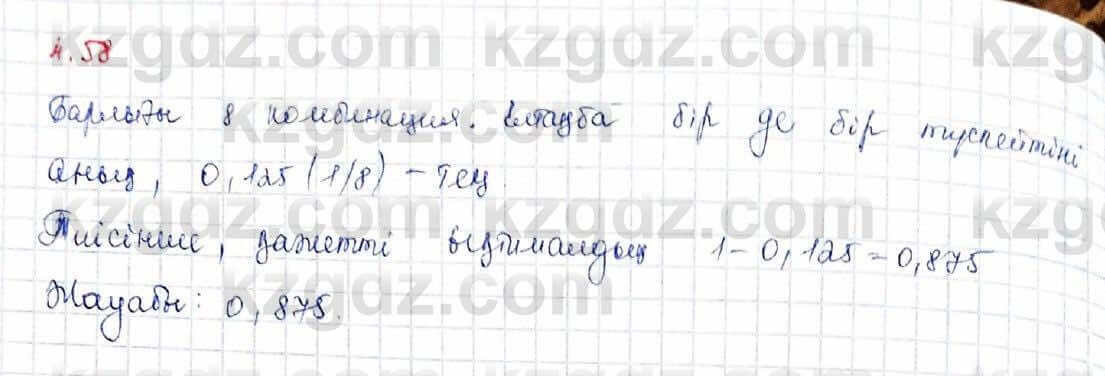 4.58
Барлығы 8 комбинация. Елтаңба бір де бір түспейтіні
анық, 0,125 (1/8) - тең.
Тиісінше, қажетті ықтималдық 1-0,125=0,875
Жауабы: 0,875.
kzgdz.com